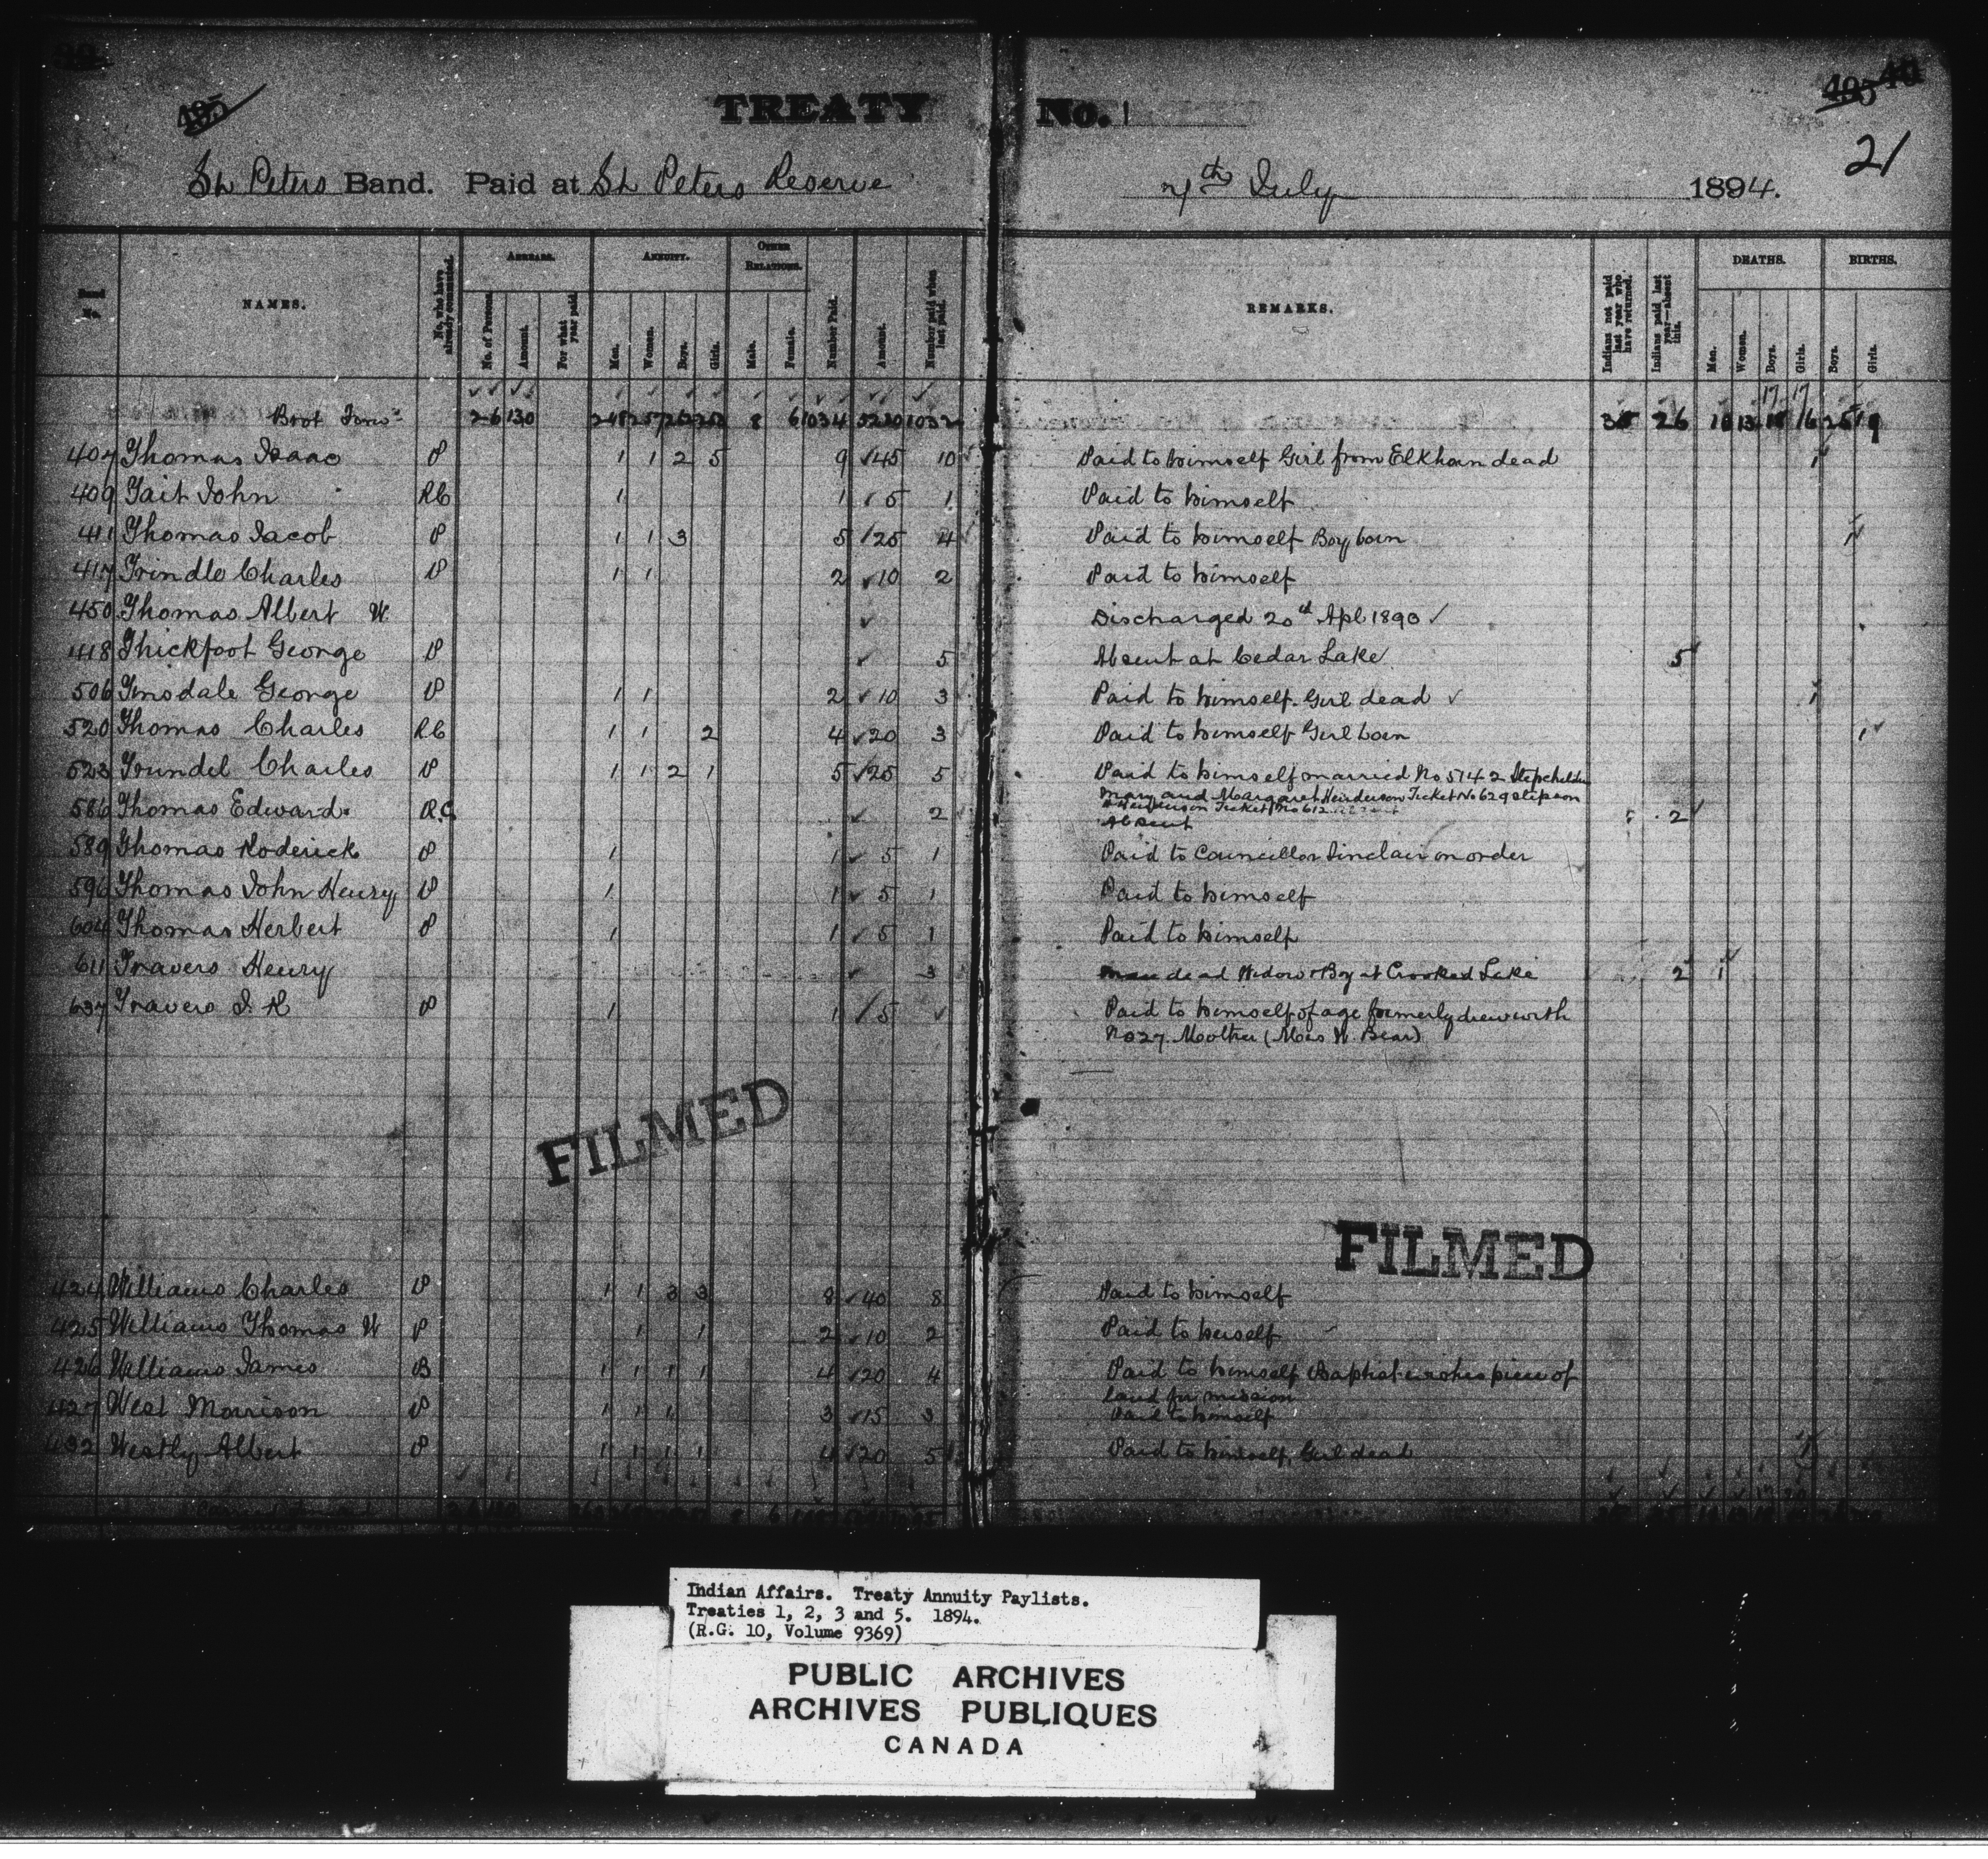 495
TREATY No. 1
495 40
21
St Peters Band. Paid at St Peters Reserve 7th July 1894.
No. NAMES. No. who have already commuted. ARREARS. No. of Persons. Amount. For what year paid. ANNUITY. Men. Women. Boys. Girls. OTHER RELATIONS. Male. Female. Number Paid. Amount. Number paid when last paid. REMARKS. Indians not paid last year who have returned. Indians paid last year—absent this. DEATHS. Men. Women. Boys. Girls. BIRTHS. Boys. Girls.
17 17
Brot Forwd 26 130 248 257 8 6 1034 5230 1032 26 13 16 25 19
407 Thomas Isaac P 1 1 2 5 9 45 10 Paid to himself Girl from Elkhorn dead 1
409 Tait John RC 1 1 5 1 Paid to himself
411 Thomas Jacob P 1 1 3 5 25 4 Paid to himself Boy born 1
417 Trindle Charles P 1 1 2 10 2 Paid to himself
450 Thomas Albert W Discharged 20th Apl 1890
418 Thickfoot George P 5 Absent at Cedar Lake 5
506 Tinsdale George P 1 1 2 10 3 Paid to himself. Girl dead 1
520 Thomas Charles RC 1 1 2 4 20 3 Paid to himself Girl born 1
523 Trundel Charles P 1 1 2 1 5 25 5 Paid to himself married No 514 2 Stepchildn
Mary and Margaret Henderson Ticket No 629 stepson
Henderson Ticket No 612
586 Thomas Edward R.C. 2 Absent 2
589 Thomas Roderick P 1 1 5 1 Paid to Councillor Sinclair on order
596 Thomas John Henry P 1 1 5 1 Paid to himself
604 Thomas Herbert P 1 1 5 1 Paid to himself
611 Travers Henry 3 Man dead Widow & Boy at Crooked Lake 2 1
637 Travers J. H P 1 1 5 Paid to himself of age formerly drew with
No 27. Mother (Mrs W. Bear)
FILMED
FILMED
424 Williams Charles P 1 1 3 3 8 40 8 Paid to himself
425 Williams Thomas W P 1 1 2 10 2 Paid to herself
426 Williams James B 1 1 1 1 4 20 4 Paid to himself Baptist wishes piece of
land for mission
427 West Morrison P 1 1 1 3 15 3 Paid to himself
432 Westly Albert P 1 1 1 1 4 20 5 Paid to himself, Girl dead 1
Indian Affairs. Treaty Annuity Paylists.
Treaties 1, 2, 3 and 5. 1894.
(R.G. 10, Volume 9369)
PUBLIC ARCHIVES
ARCHIVES PUBLIQUES
CANADA